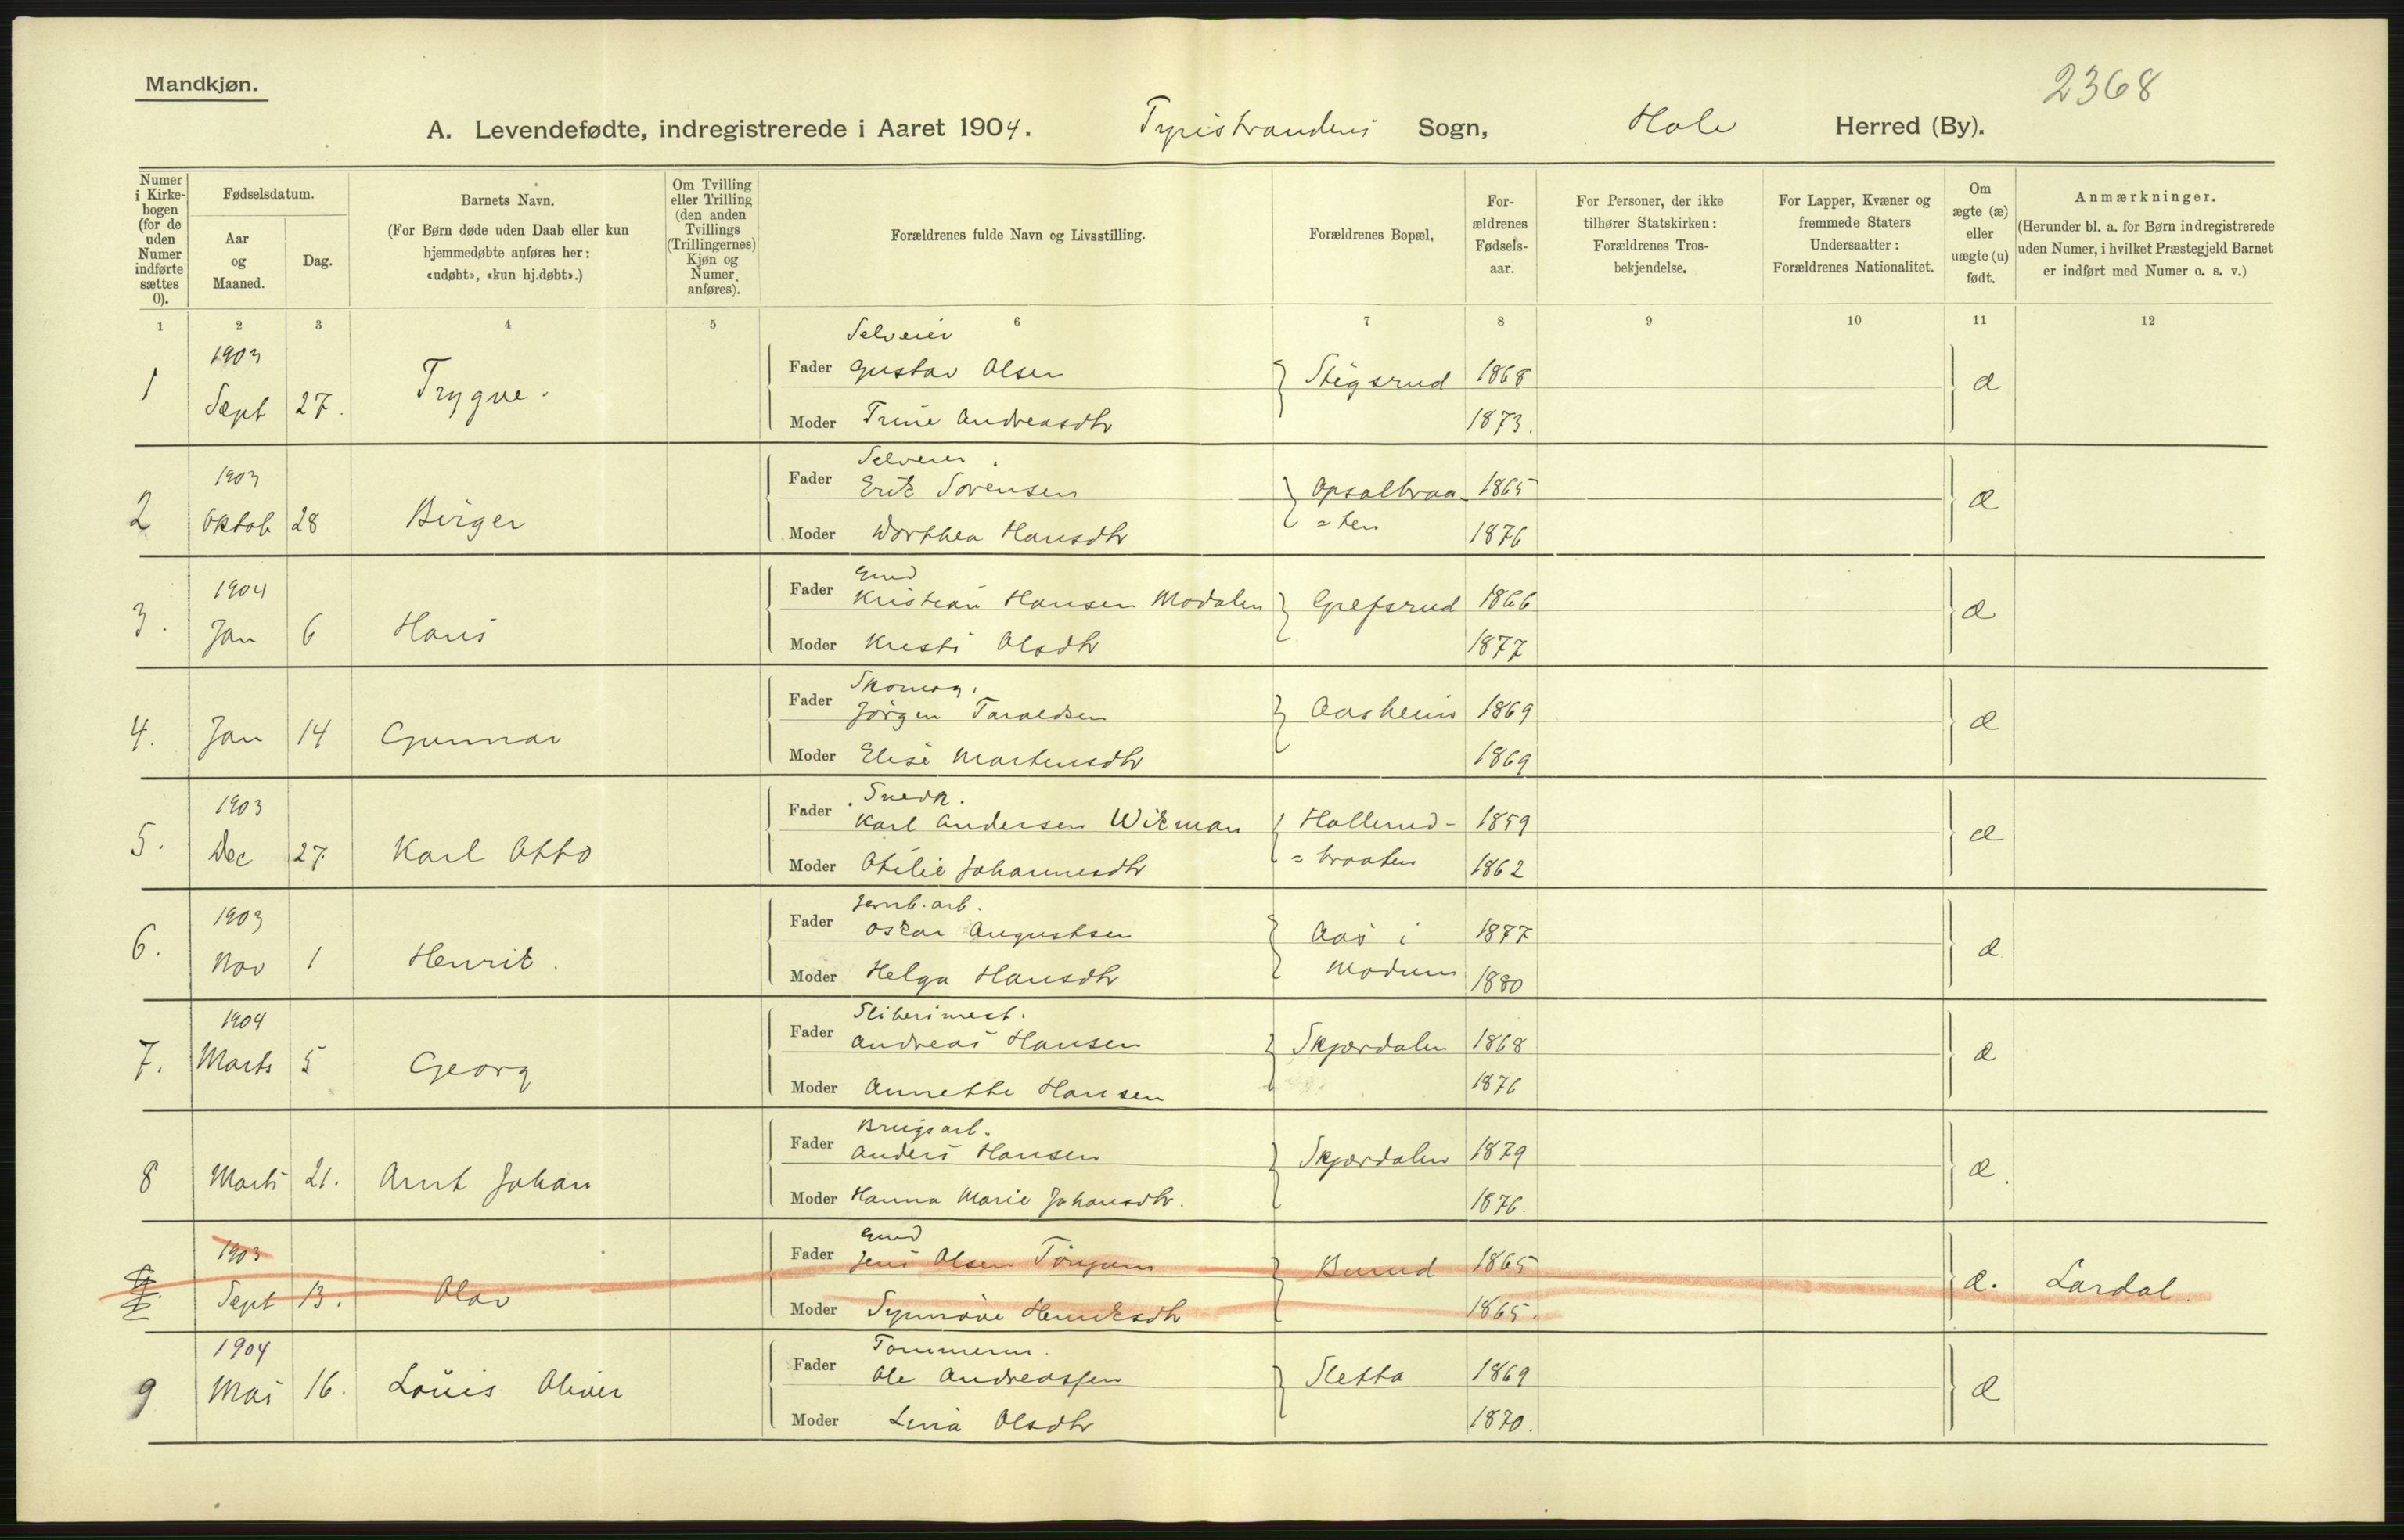 Mandkjøn.
2368
A. Levendefødte, indregistrerede i Aaret 1904. Tyristrandens Sogn, Hole Herred (By).
Numer i Kirkebogen (for de uden Numer indførte sættes 0).
Fødselsdatum.
Aar og Maaned.
Dag.
Barnets Navn.
(For Børn døde uden Daab eller kun hjemmedøbte anføres her: «udøbt», «kun hj.døbt».)
Om Tvilling eller Trilling (den anden Tvillings (Trillingernes) Kjøn og Numer anføres).
Forældrenes fulde Navn og Livsstilling.
Forældrenes Bopæl,
Forældrenes Fødselsaar.
For Personer, der ikke tilhører Statskirken: Forældrenes Trosbekjendelse.
For Lapper, Kvæner og fremmede Staters Undersaatter: Forældrenes Nationalitet.
Om ægte (æ) eller uægte (u) født.
Anmærkninger.
(Herunder bl. a. for Børn indregistrerede uden Numer, i hvilket Præstegjeld Barnet er indført med Numer o. s. v.)
1 2 3 4 5 6 7 8 9 10 11 12
Selveier
1 1903 Sept 27. Trygve. Fader Gustav Olsen Stigsrud 1868 æ
Moder Trine Andreasdtr 1873.
Selveier
2 1903 Oktob 28 Birger Fader Erik Sørensen Opsalbraa 1865 æ
Moder Dorthea Hansdtr =ten 1876
Gmd
3. 1904 Jan 6 Hans Fader Kristian Hansen Modalen Grefsrud 1866 æ
Moder Kristi Olsdtr 1877
Skomag.
4. Jan 14 Gunnar Fader Jörgen Taraldsen Aasheim 1869 æ
Moder Elise Martensdtr 1869
Snedk.
5. 1903 Dec 27. Karl Otto Fader Karl Andersen Wikman Hollerud- 1859 æ
Moder Otilie Johannesdtr =braaten 1862
Jernb. arb.
6. 1903 Nov 1 Henrik. Fader Oskar Augustsen Aas i 1877 æ
Moder Helga Hansdtr Modum 1880
Sliberimest.
7. 1904 Marts 5 Georg Fader Andreas Hansen Skjærdalen 1868 æ
Moder Annette Hansen 1876
Brugsarb.
8 Marts 21. Arnt Johan Fader Anders Hansen Skjærdalen 1879 æ.
Moder Hanna Marie Johansdtr. 1876.
Gmd
1903 Sept 13. Olav Fader Jens Olsen Burud 1865 æ. Lardal.
Moder Synnöve Henriksdtr 1865.
Tømmerm.
9 1904 Mai 16. Louis Oliver Fader Ole Andreassen Sletta 1869 æ
Moder Lina Olsdtr 1870.